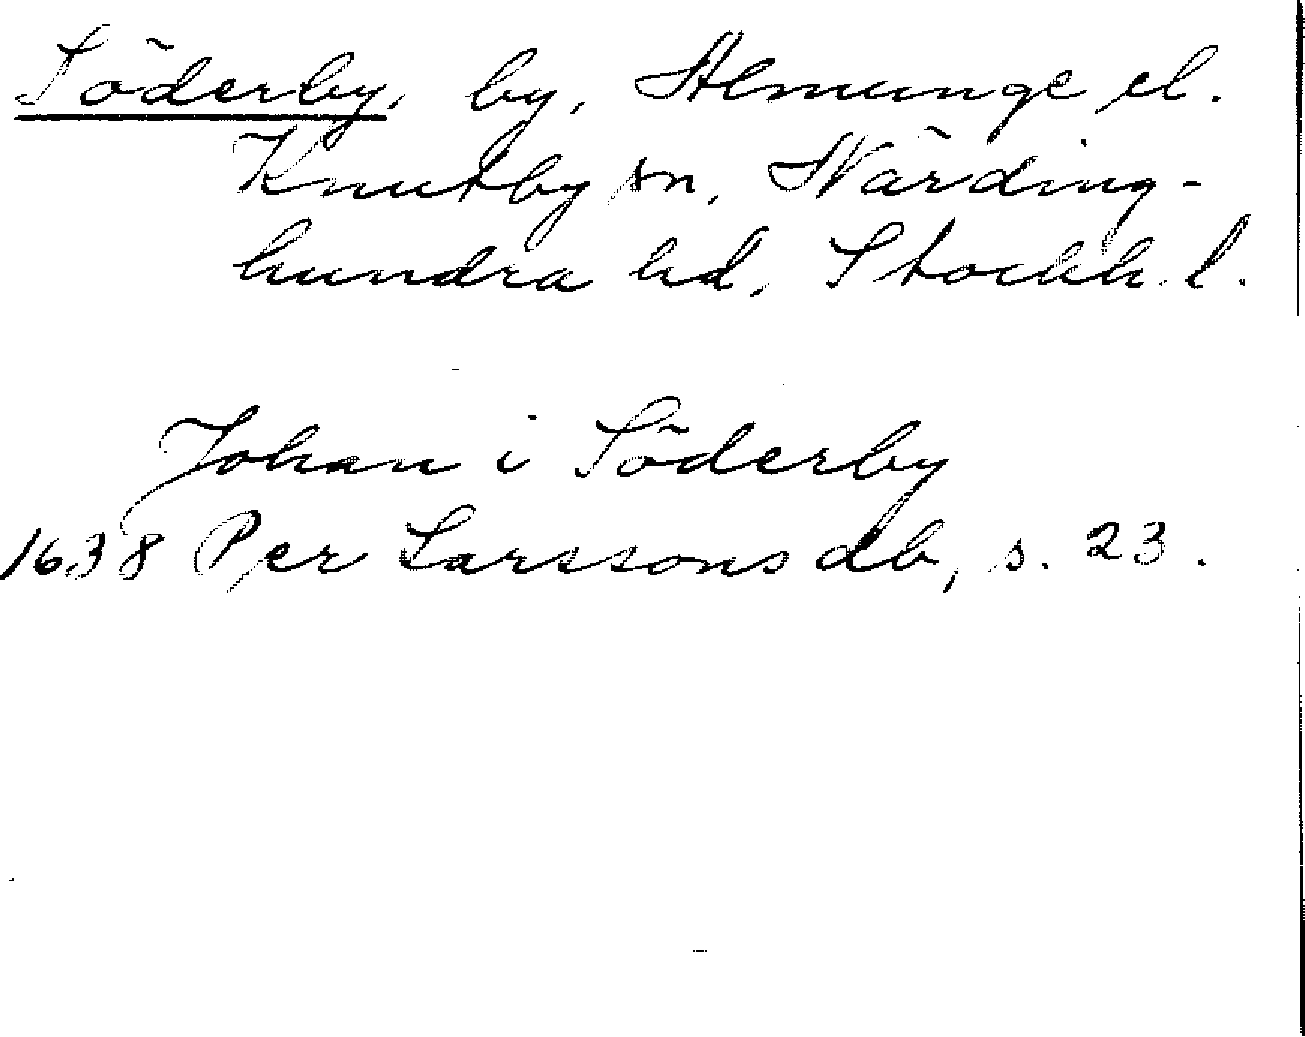 Söderby, by, Almunge el.
Knutby sn, Närding-
hundra hd, Stockh. l.
Johan i Söderby
1638 Per Larssons db, s. 23.